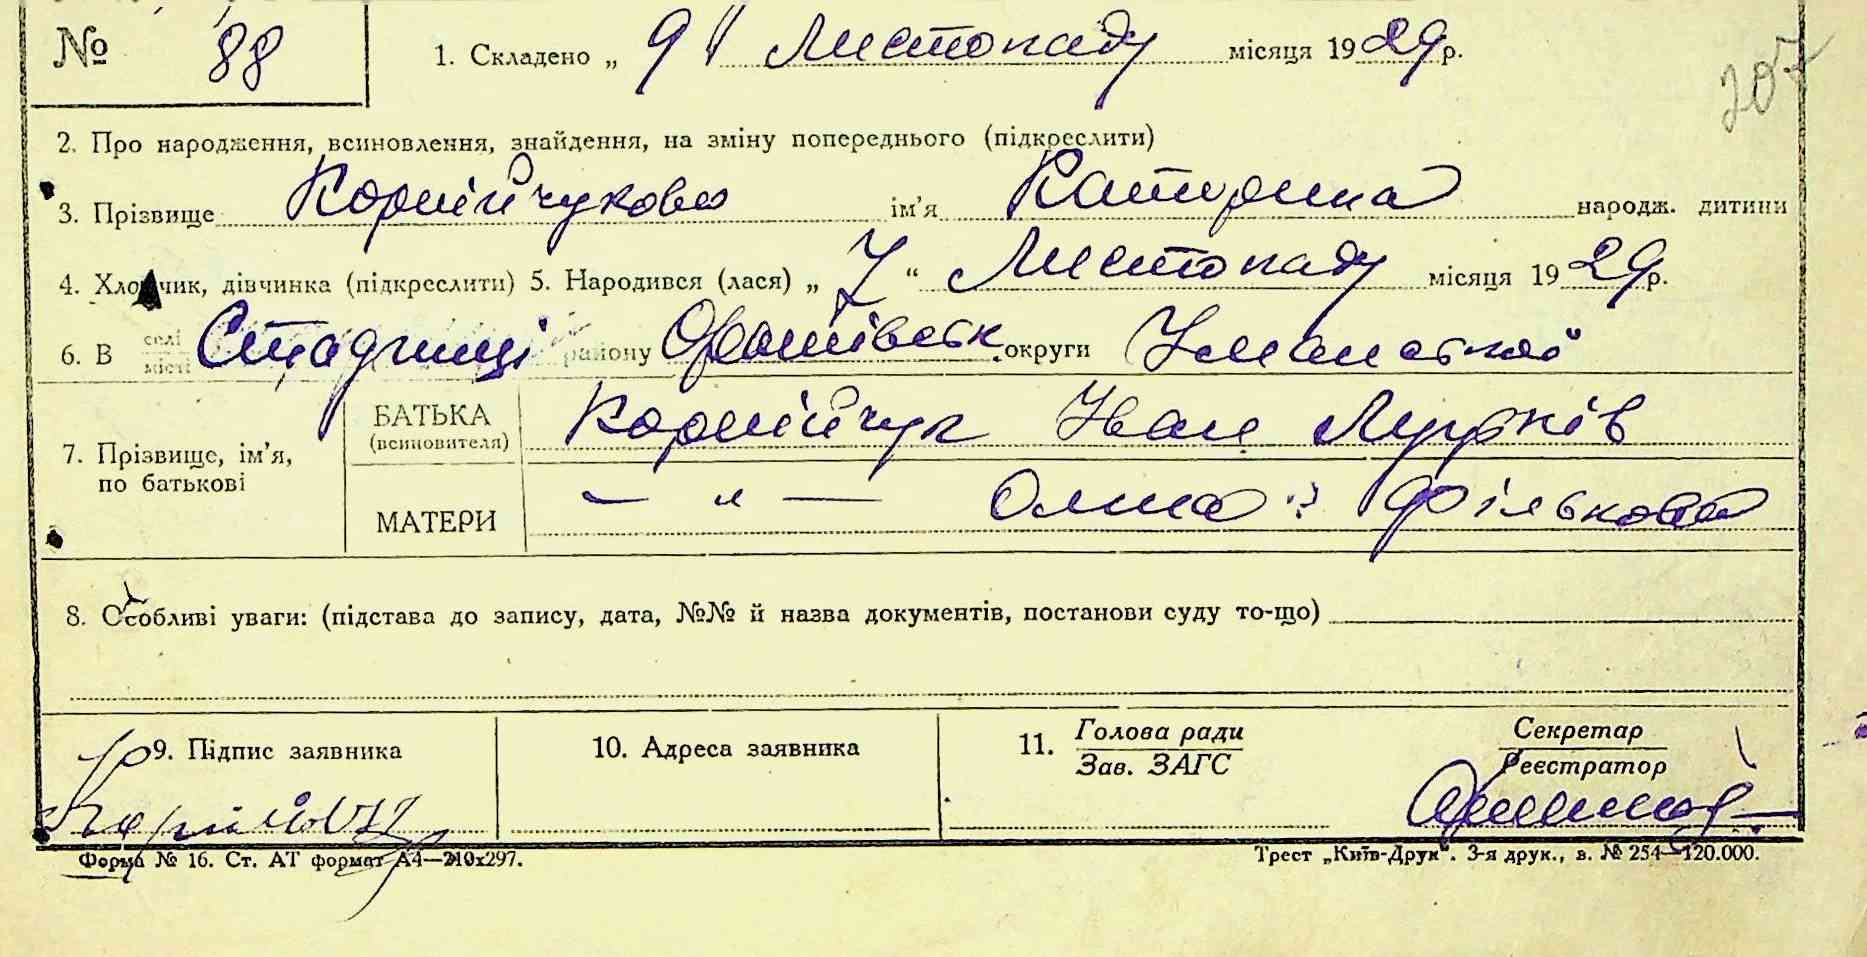 № 88 1. Складено „ 9 " Листопаду місяця 1929 р.
207
2. Про народження, всиновлення, знайдення, на зміну попереднього (підкреслити)
3. Прізвище Корнійчукова ім'я Катерина народж. дитини
4. Хлопчик, дівчинка (підкреслити) 5. Народився (лася) „ 7 “ Листопаду місяця 1929 р.
6. В селі місті Стадниці району Оратівськ. округи Уманської
7. Прізвище, ім'я, по батькові
БАТЬКА (всиновителя) Корнійчук Іван Марків
МАТЕРИ — „ — Олна Фількова
8. Особливі уваги: (підстава до запису, дата, №№ й назва документів, постанови суду то-що)
9. Підпис заявника
10. Адреса заявника
11. Голова ради Зав. ЗАГС
Секретар Реєстратор
Корнійчук
Форма № 16. Ст. АТ формат А4—210х297.
Трест „Київ-Друк“. 3-я друк., в. № 254—120.000.